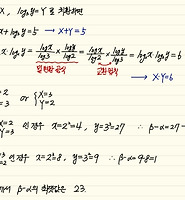 X, log₃y = Y 로 치환하면
x + log₃y = 5 → X+Y=5
x log₂y = log x/log3 × log y/log2 = log x/log2 × log y/log3 = log₂x log₃y
밑변환 공식 교환법칙 → X·Y=6
=2
=3 or {X=3 Y=2
X=2
=3 인 경우 x=2²=4, y=3³=27 ∴ β-α=27-
=3
=2 인 경우 x=2³=8, y=3²=9 ∴ β-α=9-8=1
서 β-α의 최댓값은 23.